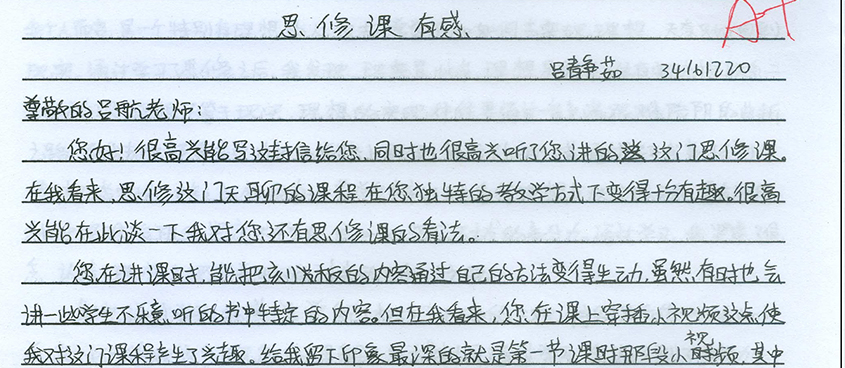 思修课有感
A+
吕静茹 34161220
尊敬的吕航老师:
您好!很高兴能写这封信给您,同时也很高兴听了您讲的这门思修课。
在我看来,思修这门无聊的课程在您独特的教学方式下变得十分有趣。很高
兴能在此谈一下我对您还有思修课的看法。
您在讲课时,能把刻板的内容通过自己的方法变得生动,虽然有时也会
讲一些学生不乐意听的书中特定的内容。但在我看来,您在课上穿插小视频这点使
我对这门课程产生了兴趣。给我留下印象最深的就是第一节课时那段小视频,其中